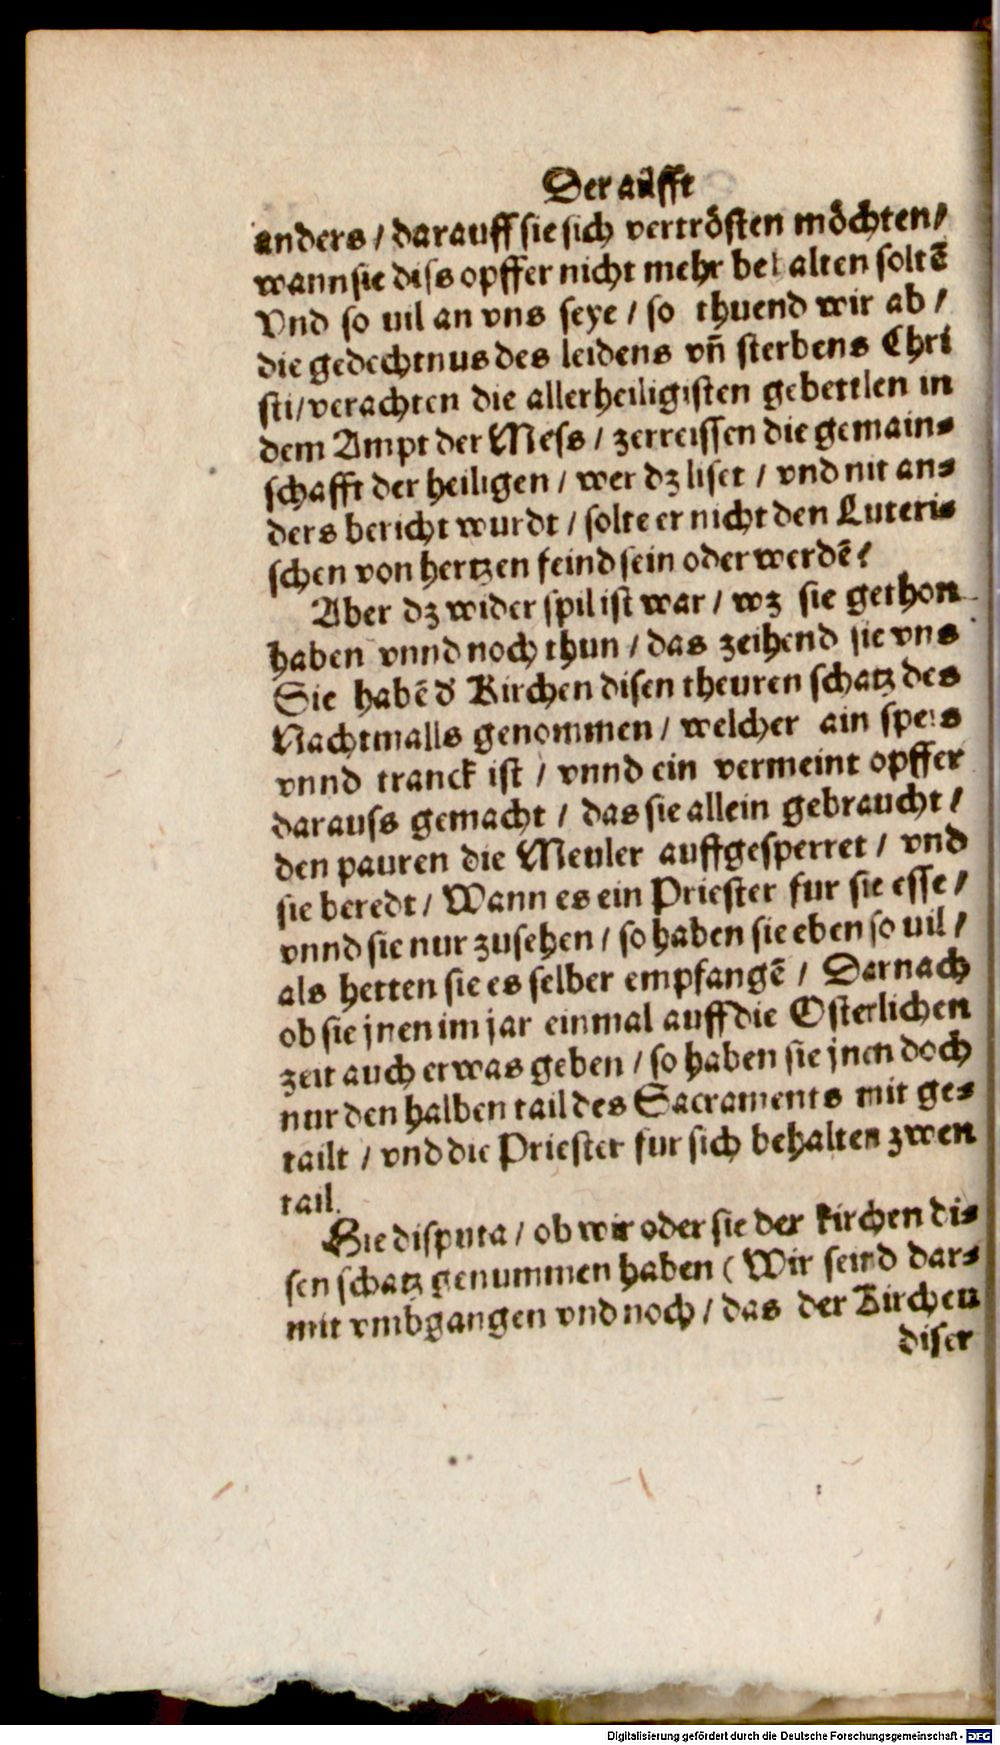 Der ailfft
anders / darauff sie sich vertrösten möchten /
wann sie diss opffer nicht mehr behalten soltē
Vnd so uil an vns seye / so thuend wir ab /
die gedechtnus des leidens vn̄ sterbens Chri
sti / verachten die allerheiligisten gebettlen in
dem Ampt der Mess / zerreissen die gemain-
schafft der heiligen / wer dz liset / vnd nit an-
ders bericht wurdt / solte er nicht den Luteri-
schen von hertzen feind sein oder werdē?
Aber dz wider spil ist war / wz sie gethon
haben vnnd noch thun / das zeihend sie vns
Sie habē d' Kirchen disen theuren schatz des
Nachtmalls genommen / welcher ain speis
vnnd tranck ist / vnnd ein vermeint opffer
darauss gemacht / das sie allein gebraucht /
den pauren die Meuler auffgesperret / vnd
sie beredt / Wann es ein Priester fur sie esse /
vnnd sie nur zusehen / so haben sie eben so uil /
als hetten sie es selber empfangē / Darnach
ob sie jnen im jar einmal auff die Osterlichen
zeit auch etwas geben / so haben sie jnen doch
nur den halben tail des Sacraments mit ge-
tailt / vnd die Priester fur sich behalten zwen
tail.
Hie disputa / ob wir oder sie der kirchen di-
sen schatz genummen haben ( Wir seind dar-
mit vmbgangen vnd noch / das der Kirchen
diser
Digitalisierung gefördert durch die Deutsche Forschungsgemeinschaft - DFG